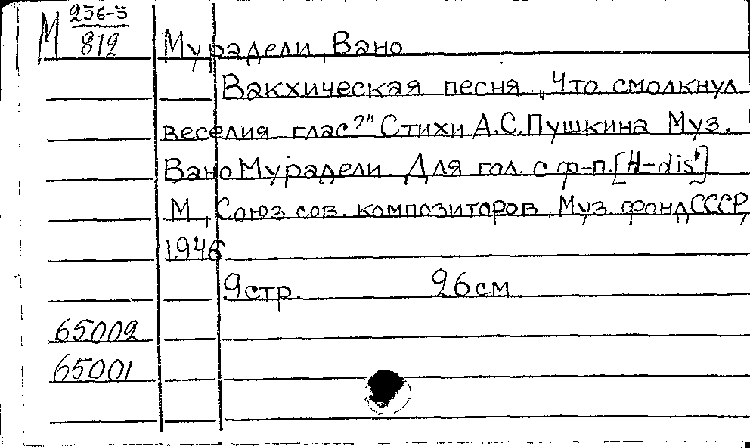 М 236-5
812
Мурадели, Вано
Вакхическая песня „Что смолкнул
веселия глас?" Стихи А.С.Пушкина Муз.
Вано Мурадели. Для гол. с ф-п. [H-dis']
М., Союз сов. композиторов, Муз. фонд СССР,
1946
9 стр. 26 см
65002
65001